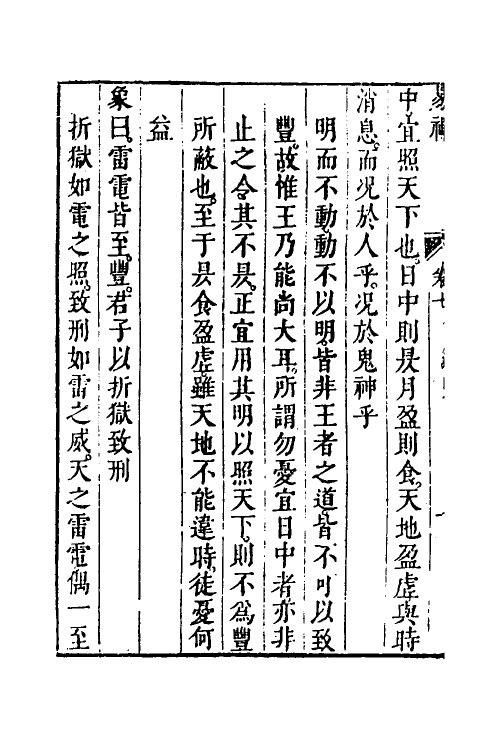 中宜照天下也。日中則昃月盈則食。天地盈虛與時
消息。而况於人乎。况於鬼神乎
明而不動。動不以明。皆非王者之道。皆不可以致
豐。故惟王乃能尚大耳。所謂勿憂宜日中者。亦非
止之令其不昃。正宜用其明以照天下。則不為豐
所蔽也。至于昃食盈虛。雖天地不能違時。徒憂何
益
象曰。雷電皆至。豐。君子以折獄致刑
折獄如電之照。致刑如雷之威。天之雷電偶一至